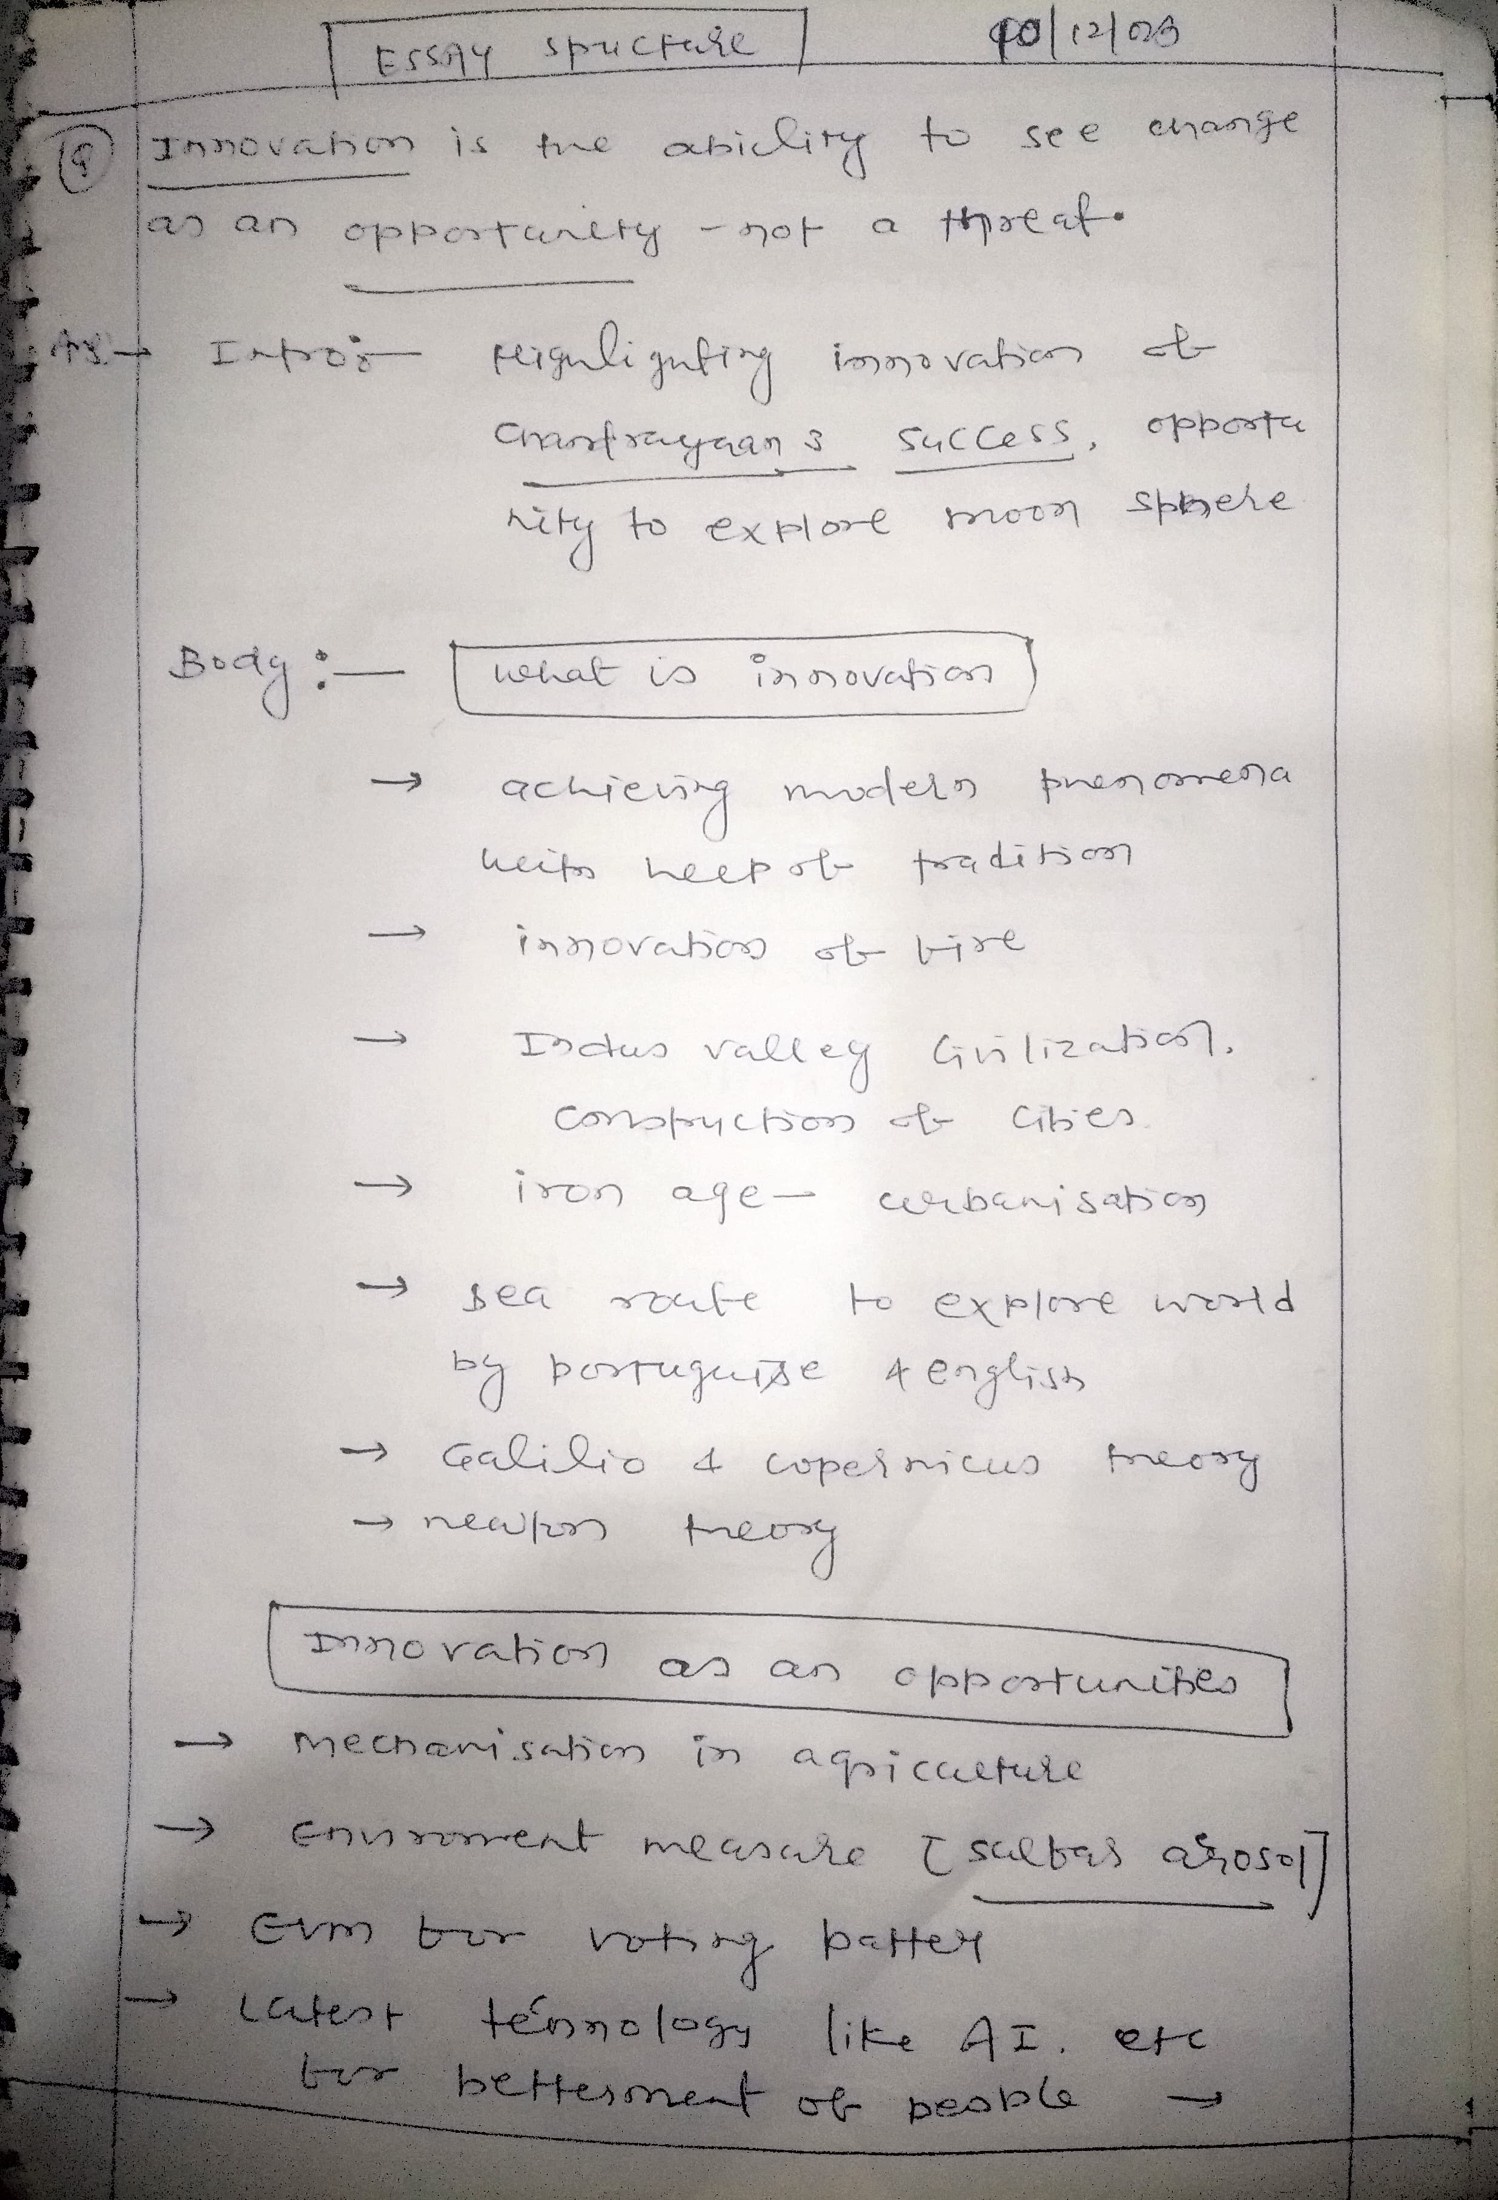 Essay structure
10/12/023
Q Innovation is the ability to see change
as an opportunity - not a threat.
Ans → Intro:- Highlighting innovation of
Chandrayaan 3 success, opportu
nity to explore moon sphere
Body :- What is innovation
→ achieving modern phenomena
with help of tradition
→ innovation of fire
→ Indus valley Civilization,
construction of Cities
→ iron age - urbanisation
→ sea route to explore world
by portuguise & english
→ Galilio & copernicus theory
→ newton theory
Innovation as an opportunities
→ Mechanisation in agriculture
→ Environment measure [sulfar arosol]
→ EVM for voting patter
→ Latest technology like AI. etc
for betterment of people →